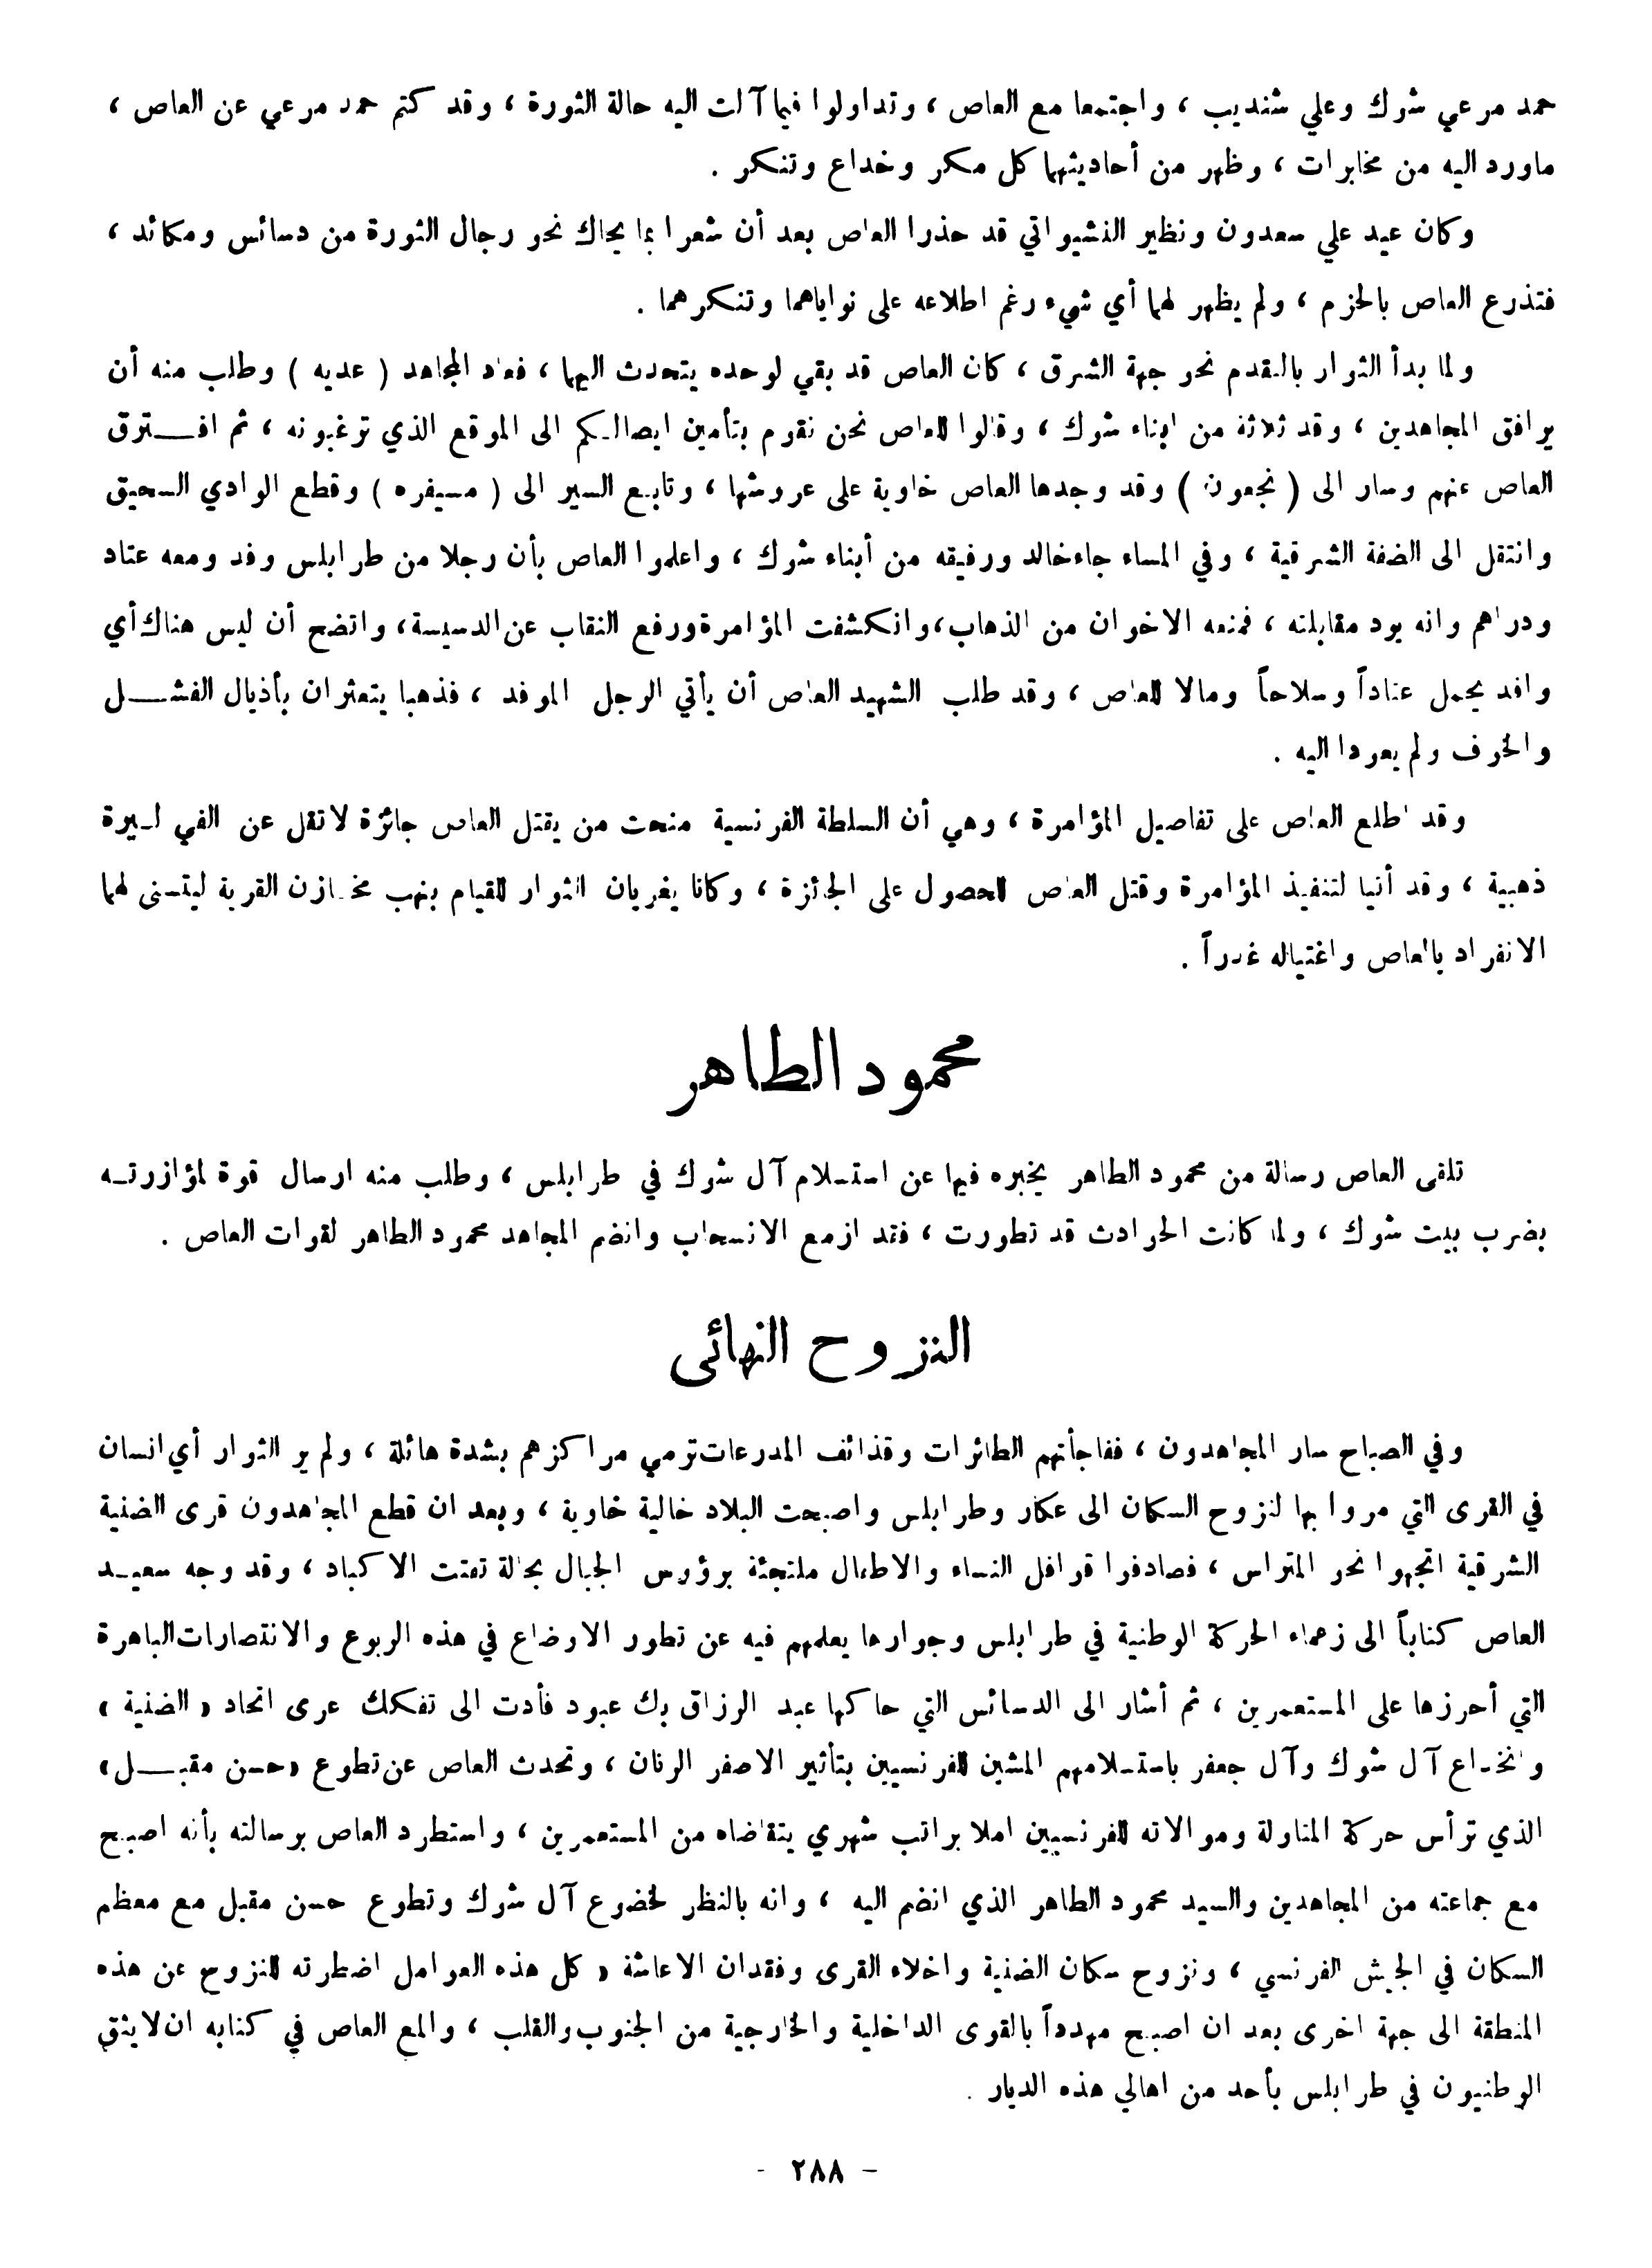 حمد مرعي شوك وعلي شنديب ، واجتمعا مع العاص ، وتداولوا فيما آلت اليه حالة الثورة ، وقد كتم حمد مرعي عن العاص ،
ماورد اليه من مخابرات ، وظهر من أحاديثهما كل مكر وخداع وتنكر .
وكان عيد علي سعدون ونظير النشيواتي قد حذرا العاص بعد أن شعرا بما يحاك نحو رجال الثورة من دسائس ومكائد ،
فتذرع العاص بالحزم ، ولم يظهر لهما أي شيء رغم اطلاعه على نواياهما وتنكرهما .
ولما بدأ الثوار بالتقدم نحو جهة الشرق ، كان العاص قد بقي لوحده يتحدث اليهما ، فعاد المجاهد ( عديه ) وطلب منه أن
يرافق المجاهدين ، وقد ثلاثة من ابناء شوك ، وقالوا للعاص نحن نقوم بتأمين ايصالكم الى الموقع الذي ترغبونه ، ثم افـــترق
العاص عنهم وسار الى ( نجعون ) وقد وجدها العاص خاوية على عروشها ، وتابع السير الى ( مسيفره ) وقطع الوادي السحيق
وانتقل الى الضفة الشرقية ، وفي المساء جاء خالد ورفيقه من أبناء شوك ، واعلموا العاص بأن رجلا من طرابلس وفد ومعه عتاد
ودراهم وانه يود مقابلته ، فمنعه الاخوان من الذهاب، وانكشفت المؤامرة ورفع النقاب عن الدسيسة، واتضح أن ليس هناك أي
وافد يحمل عتاداً وسلاحاً ومالا للعاص ، وقد طلب الشهيد العاص أن يأتي الرجل الموفد ، فذهبا يتعثران بأذيال الفشـــل
والخوف ولم يعودا اليه .
وقد اطلع العاص على تفاصيل المؤامرة ، وهي أن السلطة الفرنسية منحت من يقتل العاص جائزة لاتقل عن الفي ليرة
ذهبية ، وقد أتيا لتنفيذ المؤامرة وقتل العاص للحصول على الجائزة ، وكانا يغريان الثوار للقيام بنهب مخازن القرية ليتسنى لهما
الانفراد بالعاص واغتياله غدراً .
محمود الطاهر
تلقى العاص رسالة من محمود الطاهر يخبره فيها عن استسلام آل شوك في طرابلس ، وطلب منه ارسال قوة لمؤازرتـه
بضرب بيت شوك ، ولما كانت الحوادث قد تطورت ، فقد ازمع الانسحاب وانضم المجاهد محمود الطاهر لقوات العاص .
النزوح النهائى
وفي الصباح سار المجاهدون ، ففاجأتهم الطائرات وقذائف المدرعات ترمي مراكزهم بشدة هائلة ، ولم ير الثوار أي انسان
في القرى التي مروا بها لنزوح السكان الى عكار وطرابلس واصبحت البلاد خالية خاوية ، وبعد ان قطع المجاهدون قرى الضنية
الشرقية اتجهوا نحو المتراس ، فصادفوا قوافل النساء والاطفال ملتجئة برؤوس الجبال بحالة تفتت الاكباد ، وقد وجه سعيـد
العاص كتاباً الى زعماء الحركة الوطنية في طرابلس وجوارها يعلمهم فيه عن تطور الاوضاع في هذه الربوع والانتصارات الباهرة
التي أحرزها على المستعمرين ، ثم أشار الى الدسائس التي حاكها عبد الرزاق بك عبود فأدت الى تفكك عرى اتحاد « الضنية »
وانخداع آل شوك وآل جعفر باستسلامهم المشين للفرنسيين بتأثير الاصفر الرنان ، وتحدث العاص عن تطوع «حسن مقبـــل»
الذي ترأس حركة المتاولة وموالاته للفرنسيين املا براتب شهري يتقاضاه من المستعمرين ، واستطرد العاص برسالته بأنه اصبح
مع جماعته من المجاهدين والسيد محمود الطاهر الذي انضم اليه ، وانه بالنظر لخضوع آل شوك وتطوع حسن مقبل مع معظم
السكان في الجيش الفرنسي ، ونزوح سكان الضنية واخلاء القرى وفقدان الاعاشة « كل هذه العوامل اضطرته للنزوح عن هذه
المنطقة الى جهة اخرى بعد ان اصبح مهدداً بالقوى الداخلية والخارجية من الجنوب والقلب ، والمع العاص في كتابه ان لا يثق
الوطنيون في طرابلس بأحد من اهالي هذه الديار .
- ٢٨٨ -